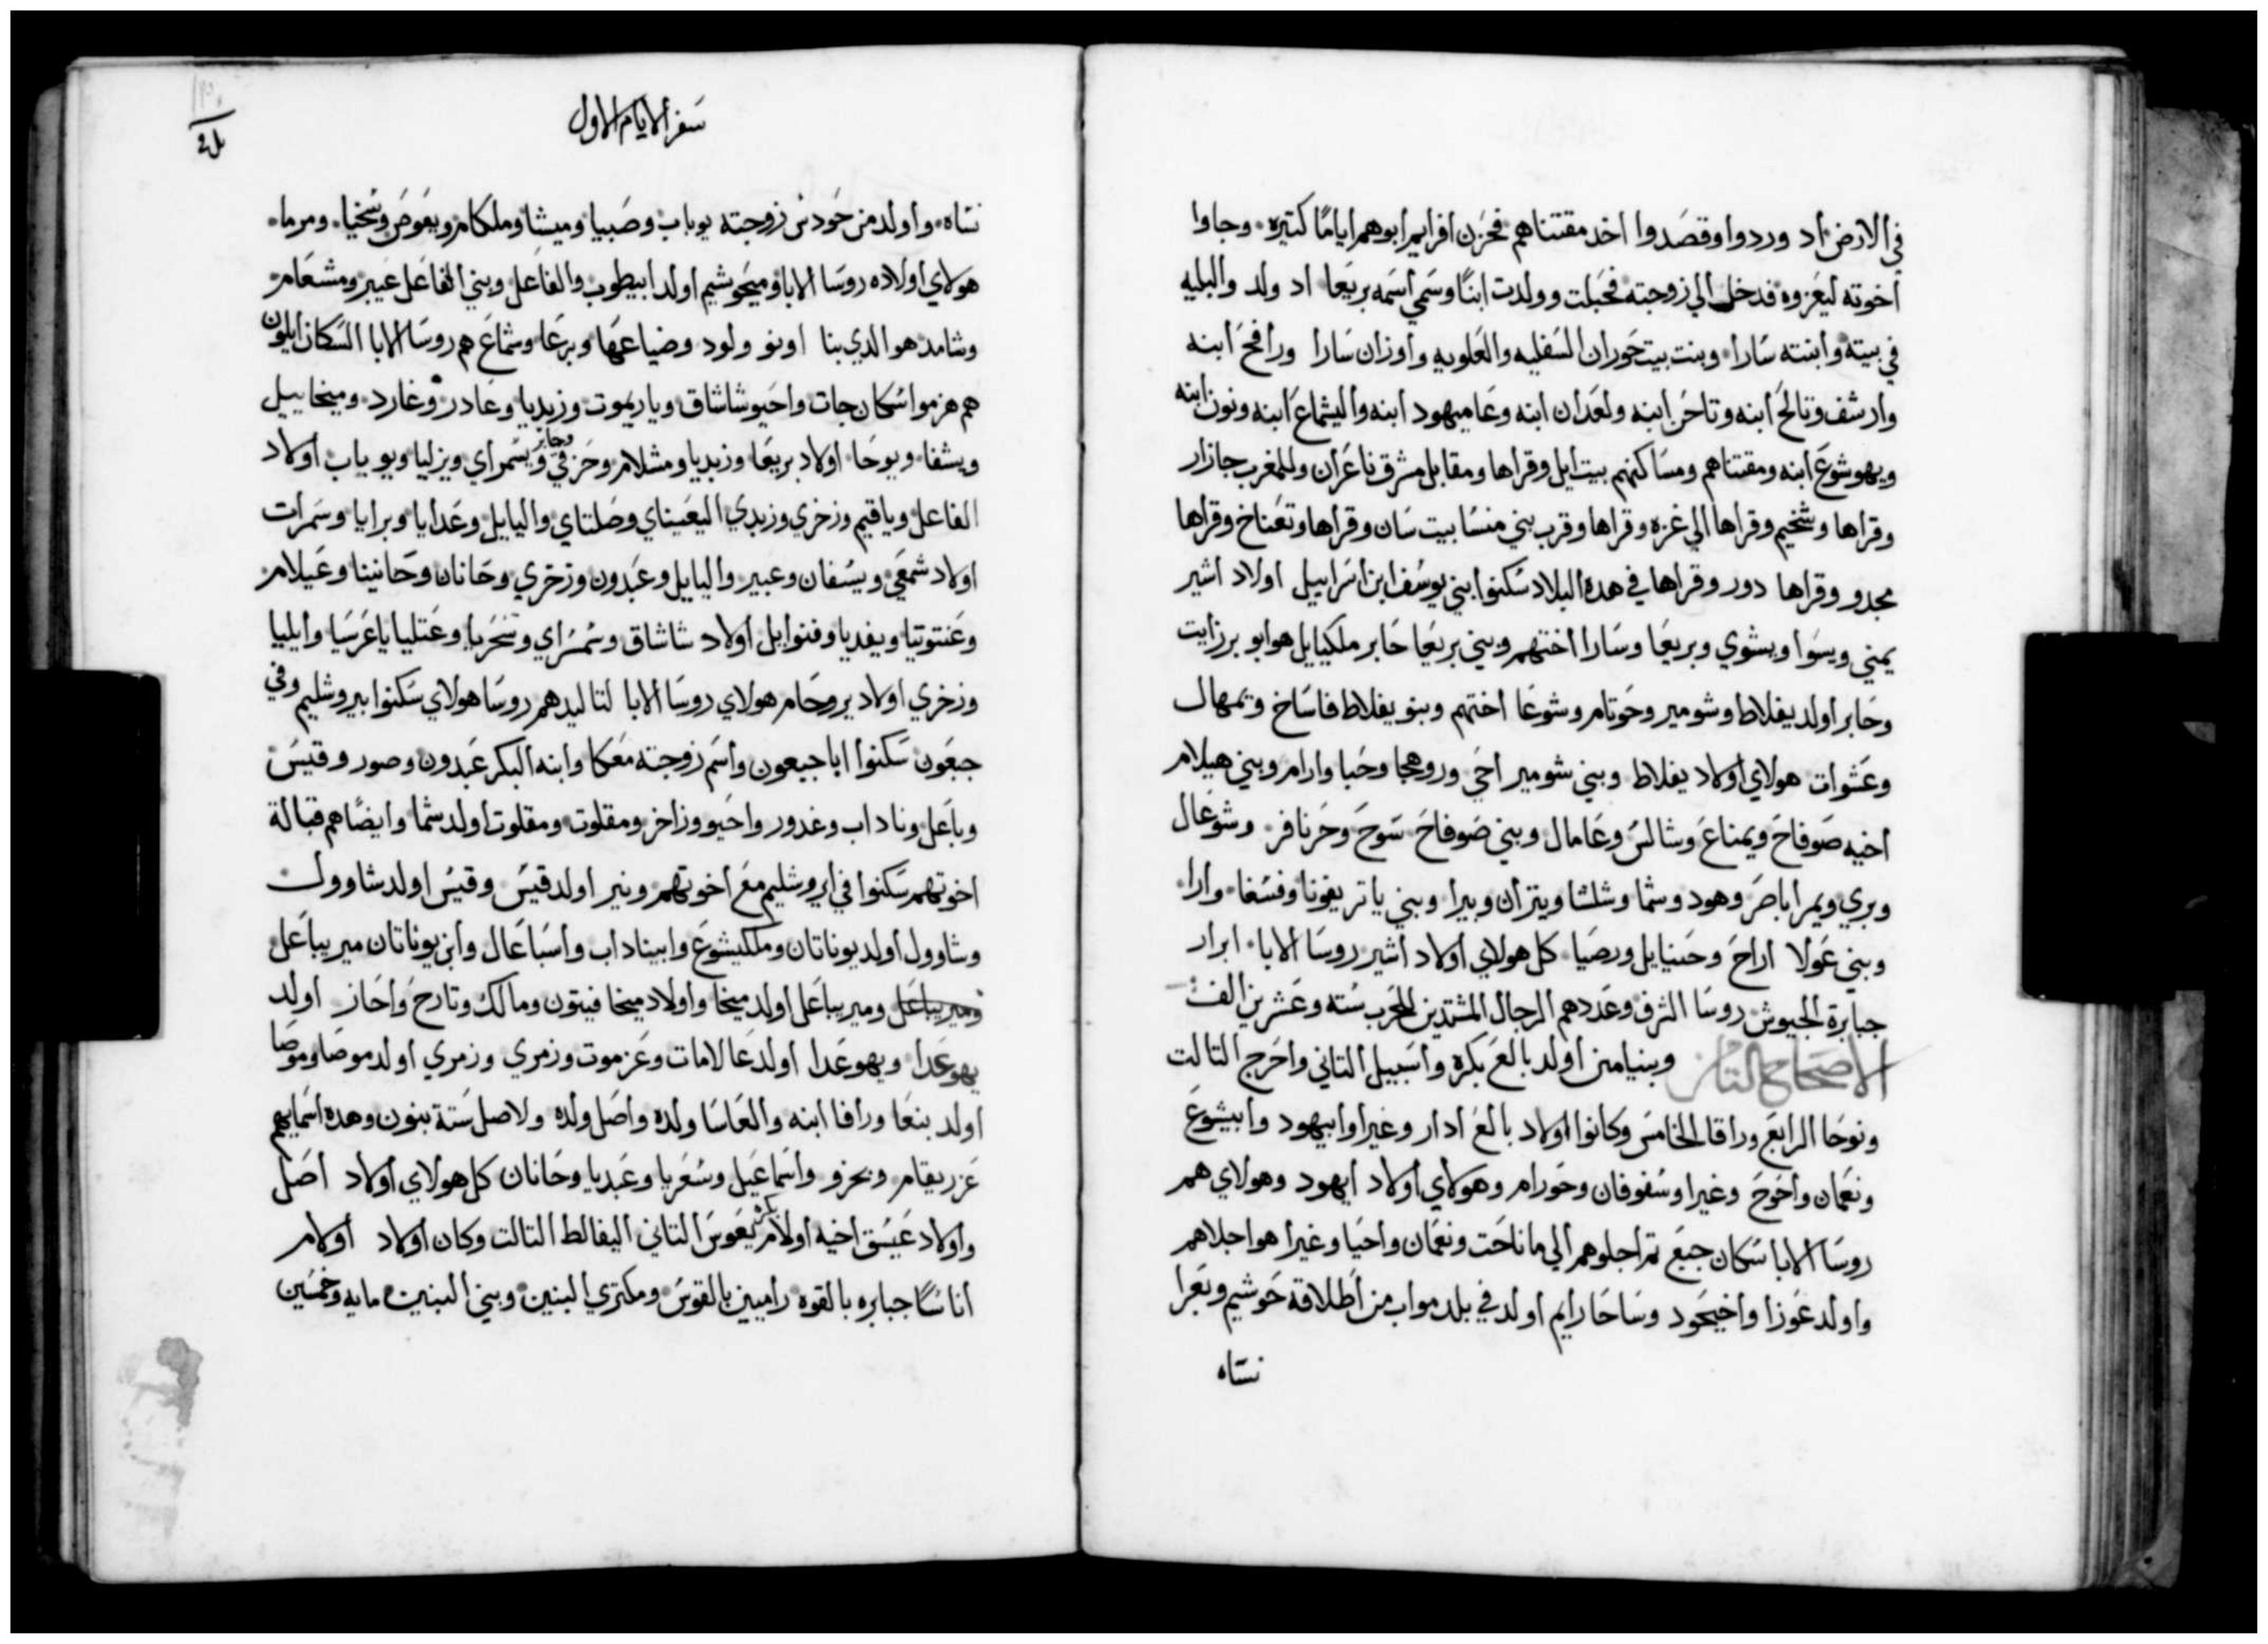 في الارض اد وردوا وقصدوا اخد مقتناهم فحزن افرايم ابوهم اياما كتيره وجاوا
اخوته ليعزوه فدخل الي زوجته فحبلت وولدت ابنا وسمي اسمه بريعا اد ولد والبليه
في بيته وابنته سارا وبنت بيت حوران السفليه والعلويه واوزان سارا ورافح ابنه
وارشف وتالح ابنه وتاحن ابنه ولعدان ابنه وعاميهود ابنه واليشماع ابنه ونون ابنه
ويهوشوع ابنه ومقتناهم ومساكنهم بيت ايل وقراها ومقابل مشرق ناعران وللمغرب جازار
وقراها وشخيم وقراها الي غزه وقراها وقرب بني منسا بيت سان وقراها وتعناخ وقراها
مجدو وقراها دور وقراها في هده البلاد سكنوا بني يوسف ابن اسراييل اولاد اشير
يمني ويسوا ويشوي وبريعا وسارا اختهم وبني بريعا حابر ملكيايل هو ابو برزايت
وحابر اولد يفلاط وشومير وحوتام وشوعا اختهم وبنو يفلاط فاساخ وتمهال
وعشوات هولاي اولاد يفلاط وبني شومير احي وروهجا وحبا وارام وبني هيلام
اخيه صوفاح ويمناع وشالس وعامال وبني صوفاح سوح وحرنافر وشوعال
وبري ويمرا باصر وهود وشما وشلشا ويتران وبيرا وبني ياتر يفونا وفسغا وارا
وبني عولا اراح وحنيايل ورصيا كل هولاي اولاد اشير روسا الابا ابرار
جبابرة الجيوش روسا الشرف وعددهم الرجال المشتدين للحرب سته وعشرين الف
الاصحاح التامن وبنيامين اولد بالع بكره واسبيل التاني واحرج التالت
ونوحا الرابع ورافا الخامس وكانوا اولاد بالع ادار وغيرا وابيهود وابيشوع
ونعمان واحوح وغيرا وسفوفان وحورام وهولاي اولاد ايهود وهولاي هم
روسا الابا سكان جبع تم اجلوهم الي ماناحت ونعمان واحيا وغيرا هو اجلاهم
واولد عوزا واخيحود وساحارايم اولد في بلد مواب من اطلاقة حوشيم وبعرا
نساه
سفر الايام الاول
نساه واولد من حودس زوجته يوباب وصبيا وميشا وملكام ويعوص وشخيا ومرما
هولاي اولاده روسا الابا وميحوشيم اولد ابيطوب والفاعل وبني الفاعل عيبر ومشعام
وشامد هو الدي بنا اونو ولود وضياعها وبرعا وشماع هم روسا الابا السكان ايلون
هم هزموا سكان جات واحيو شاشاق وياريموت وزبديا وعادر وغارد وميخاييل
ويشفا ويوحا اولاد بريعا وزبديا ومشلام وحزقي وحابر ويسمراي ويزليا ويوباب اولاد
الفاعل وياقيم وزخري وزبدي اليعيناي وصلتاي واليايل وعدايا وبرايا وسمرات
اولاد شمعي ويسفان وعيبر واليايل وعبدون وزخري وحانان وحانينا وعيلام
وعنتوتيا ويفديا وفنوايل اولاد شاشاق وشمسراي وشحريا وعتليا ياعرسيا وايليا
وزخري اولاد يروحام هولاي روسا الابا لتاليدهم روسا هولاي سكنوا بيروشليم وفي
جبعون سكنوا ابا جبعون واسم زوجته معكا وابنه البكر عبدون وصور وقيس
وباعل وناداب وغدور واحيو وزاخر ومقلوت ومقلوت اولد شما وايضا هم قبالة
اخوتهم سكنوا في ايروشليم مع اخوتهم ونير اولد قيس وقيس اولد شاوول
وشاوول اولد يوناتان وملكيشوع وابيناداب واسباعال وابن يوناتان ميريباعل
وميريباعل وميريباعل اولد ميخا واولاد ميخا فيتون ومالك وتارح واحاز اولد
يهوعدا ويهوعدا اولد عالامات وعزموت وزمري وزمري اولد موصا وموصا
اولد بنعا ورافا ابنه والعاسا ولده واصل ولده ولاصل ستة بنون وهده اسمايهم
عزريقام وبخرو واسماعيل وشعريا وعبديا وحانان كل هولاي اولاد اصل
واولاد عيشق اخيه اولام بكره يعوس التاني اليفالط التالت وكان اولاد اولام
اناسا جبابره بالقوه راميين بالقوس ومكتري البنين وبني البنين مايه وخمسين